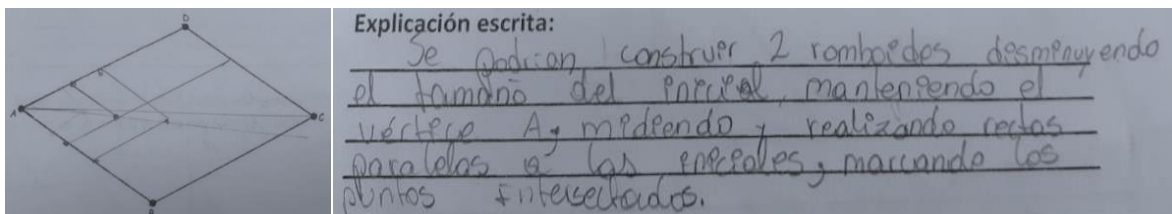 D
A
C
B
Explicación escrita:
Se podrian construir 2 romboides desminuyendo
el tamaño del inicial, manteniendo el
vértice A, midiendo y realizando rectas
paralelas a las iniciales, marcando los
puntos intersectados.